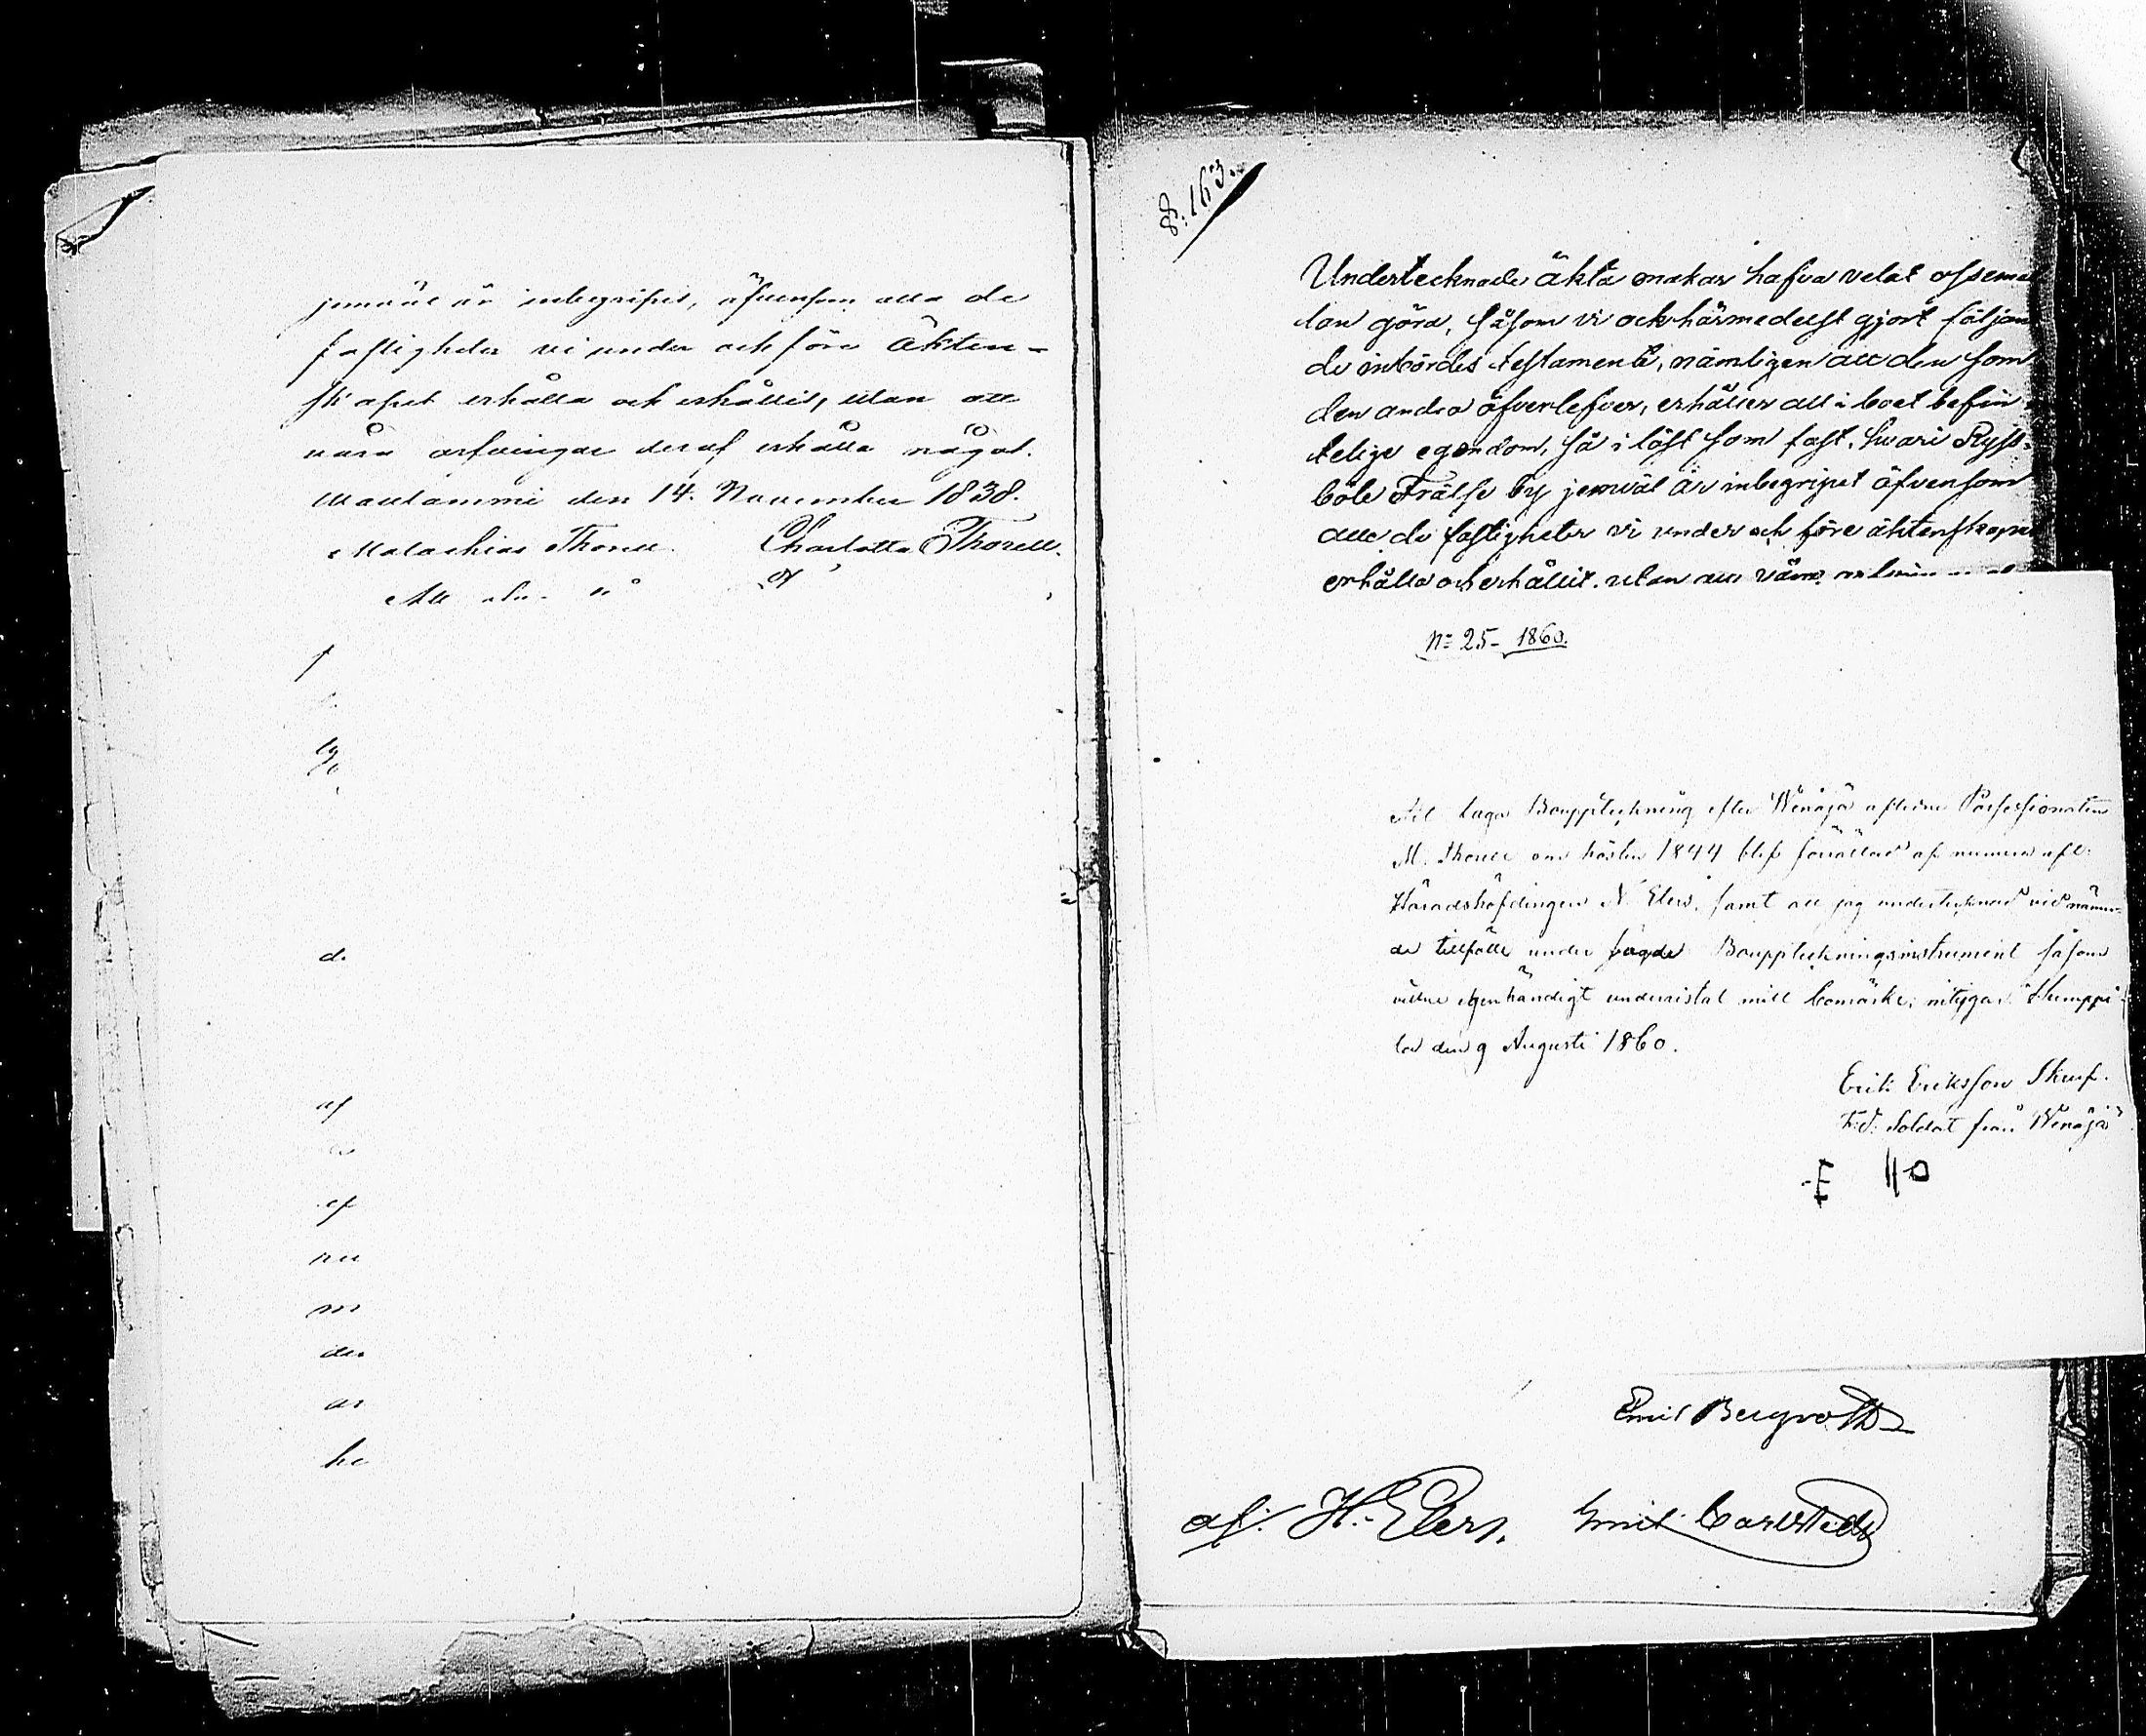 jemväl är inbegripes, äfvensom alla de
fastigheter vi under och före Äkten-
skapet erhålla och erhållit, utan att
våra arfvingar deraf erhålla något.
Mautammi den 14. November 1838.
Malachias Thorell. Charlotta Thorell.
Att
d.
af
ef
nu
m
der
ar
he
8:163.
Undertecknade äkta makar hafva velat ossemel
lan göra, såsom vi ock härmedelst gjort följan
de inbördes testamente, nämligen att den som
den andra öfverlefver, erhåller all i boet befin
telige egendom, så i löst som fast, hvari Ryss-
böle Frälse by jemväl är inbegripet äfvensom
alla de fastigheter vi under och före äktenskape
erhålla och erhållit, utan att våra
No 25- 1860.
Att laga Bouppteckning efter Wenäjä aflidne Possessionaten
M. Thorell om hösten 1844 blef förrättad af numera afl.
Häradshöfdingen N. Elers, samt att jag undertecknad vid nämn-
de tillfälle under sagde Bouppteckningsinstrument såsom
vittne egenhändigt underristat mitt bomärke, intygar. Kumppi-
la den 9 Augusti 1860.
Erik Eriksson Skarp.
F.d. Soldat från Wenäjä
E HD
Emil Bergroth
af: H. Elers. Emil Carlstedt